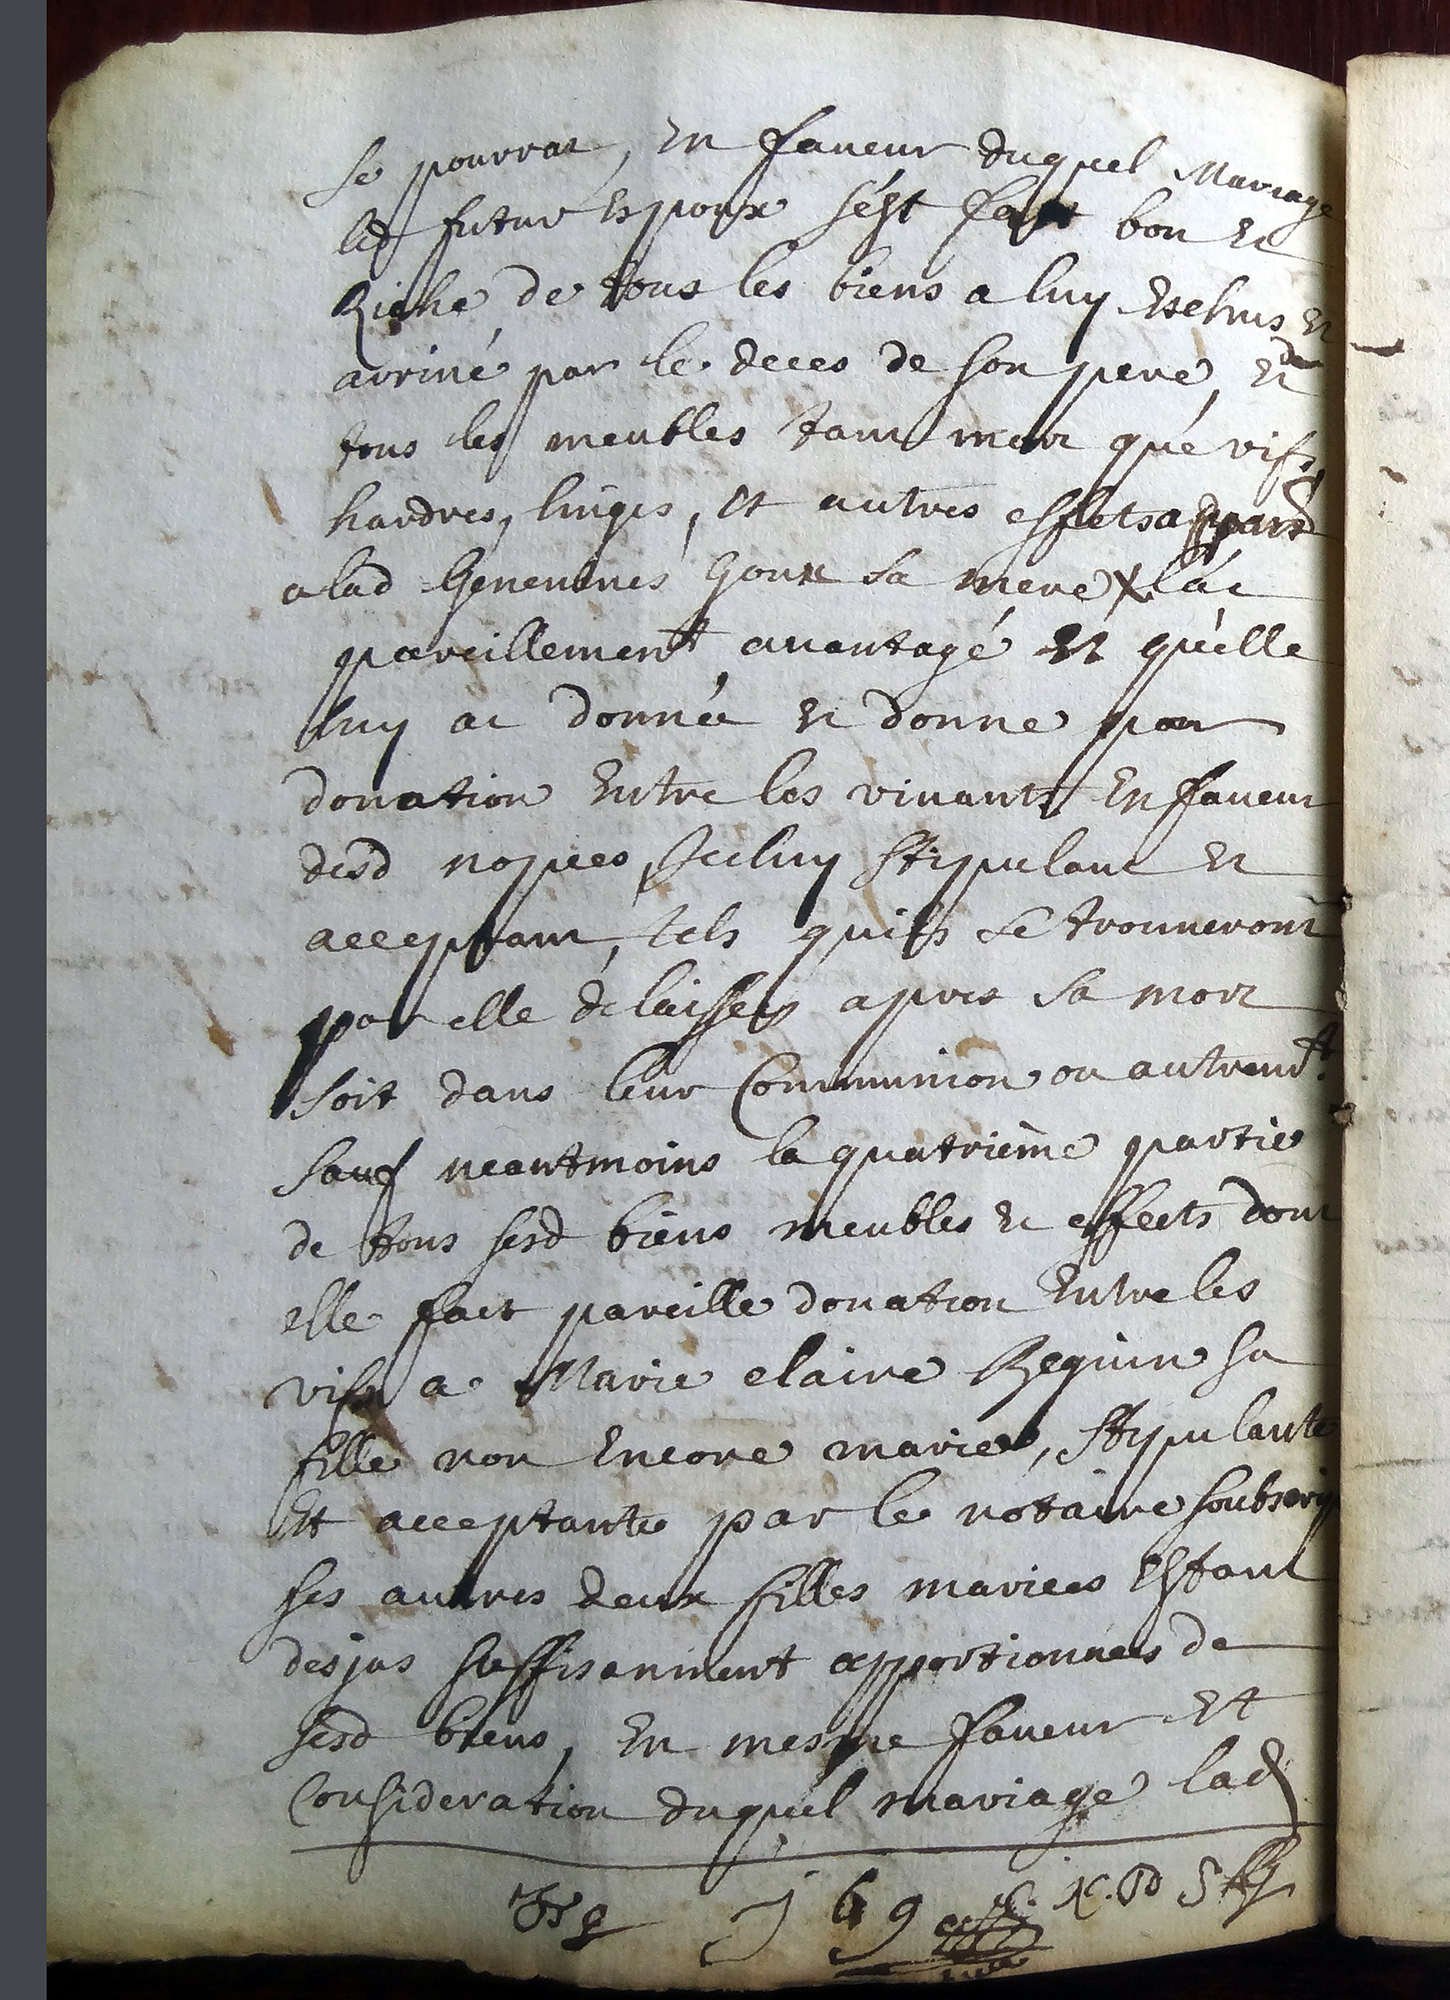 se pourrat, en faueur duquel Mariage
led futur espoux s'est fait bon et
Riche de tous les biens a luy eschus et
arriué par le deces de son pere, et de
tous les meubles tant mort que vifs,
hardres, linges, et autres effets appart
a lad Geneuiues Goux sa mere X l'at
pareillement auantagé et qu'elle
luy at donnée et donne par
donation entre les viuants en faueur
desd nopces, Iceluy stipulant et
acceptant, tels quils se trouueront
par elle delaissés apres sa mort
soit dans leur Communion ou autremt.
sauf neantmoins la quatrième partie
de tous sesd biens meubles et effects dont
elle fait pareille donation entre les
vifs a Marie claire Reguin sa
fille non encore mariée, stipulante
et acceptante par le notaire soubscrip
ses autres deux filles mariees estant
desjas suffisanment apportionnées de
sesd biens, en mesme faueur et
Consideration duquel mariage lad
j 69